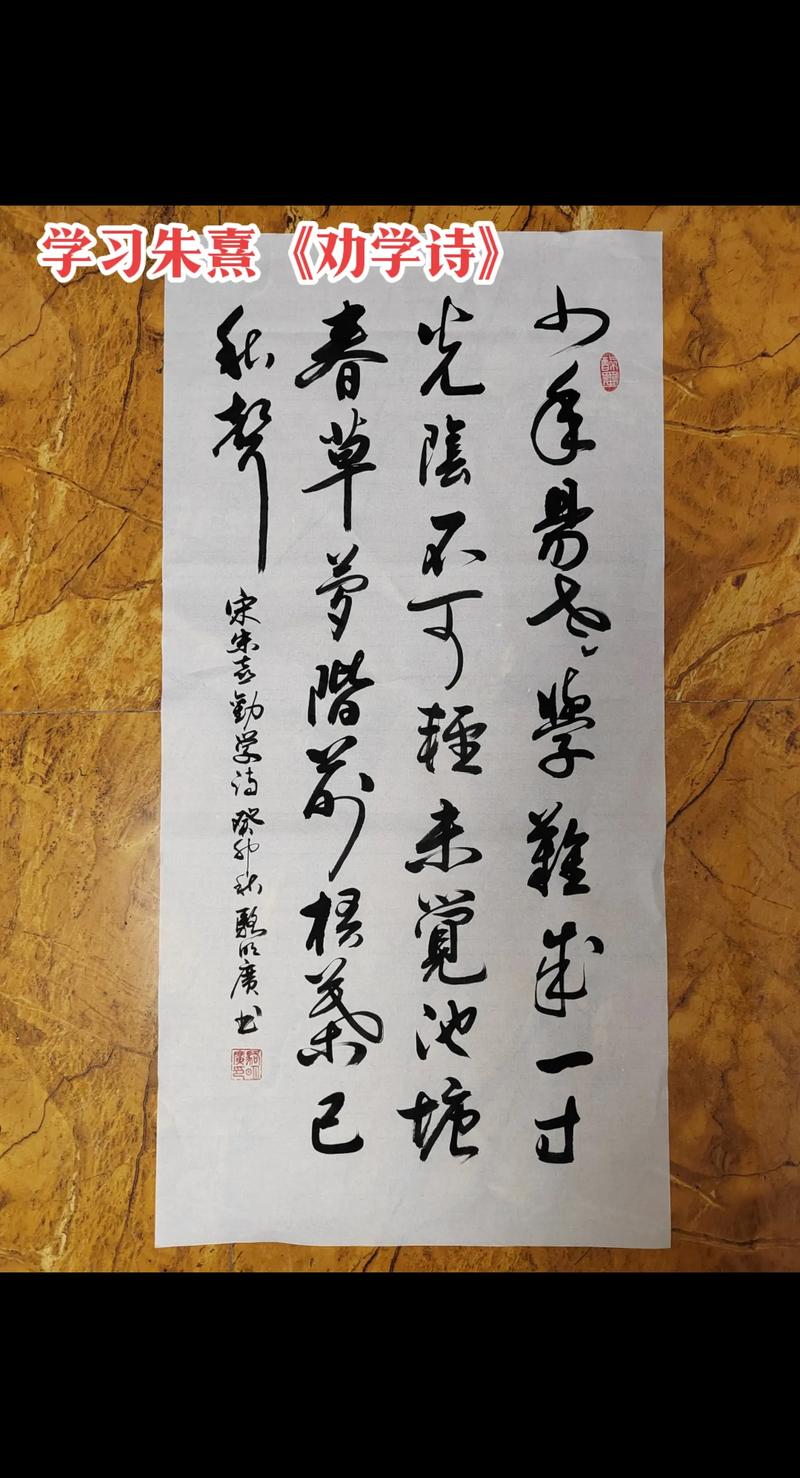 学习朱熹《劝学诗》
少年易老學難成一寸
光陰不可輕未覺池塘
春草夢階前梧葉已
秋聲
宋朱熹勸学诗癸卯秋駱明廣书